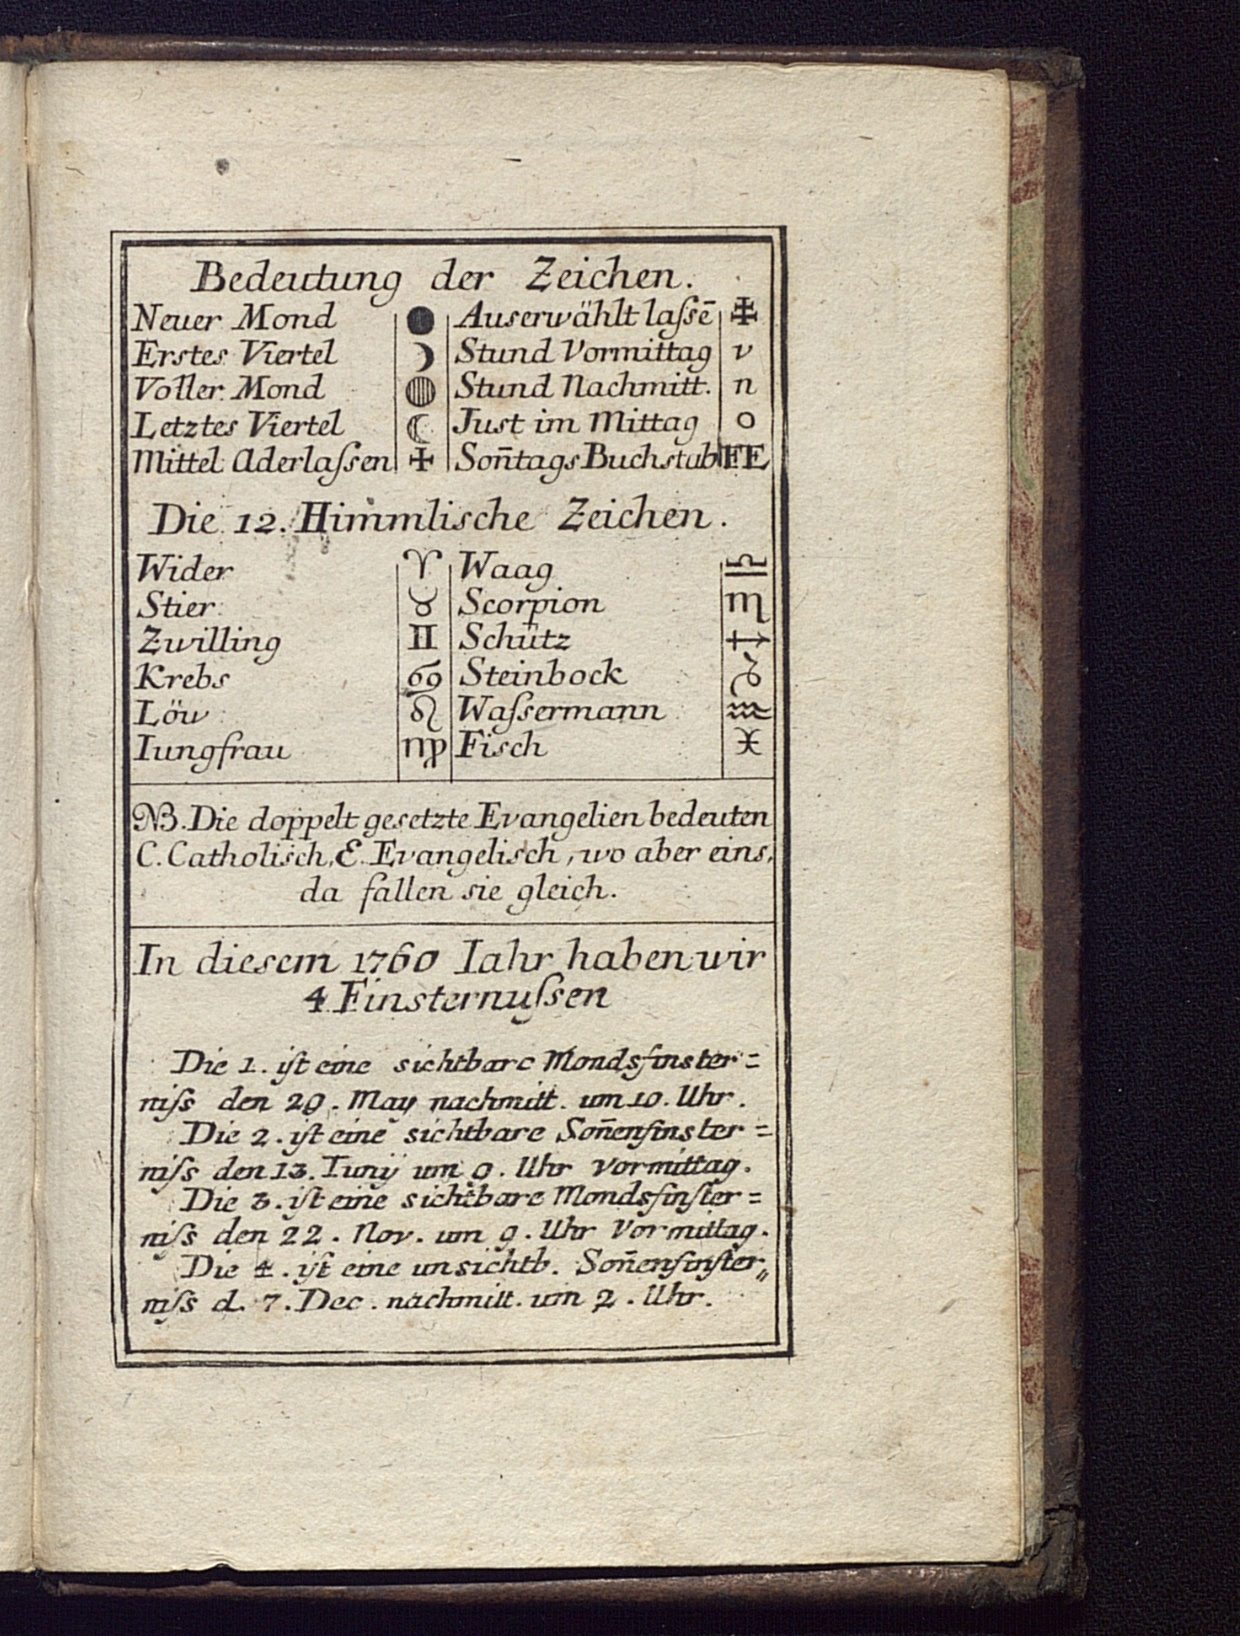 Bedeutung der Zeichen.
Neuer Mond ● Auserwählt laſsē ✠
Erstes Viertel ☽ Stund Vormittag v
Voller Mond ◍ Stund Nachmitt. n
Letztes Viertel ☾ Just im Mittag o
Mittel Aderlaſsen ✠ Son̄tags Buchstub FE
Die 12. Himmlische Zeichen.
Wider ♈ Waag ♎
Stier ♉ Scorpion ♏
Zwilling ♊ Schütz ♐
Krebs ♋ Steinbock ♑
Löw ♌ Waſsermann ♒
Iungfrau ♍ Fisch ♓
NB. Die doppelt gesetzte Evangelien bedeuten
C. Catholisch, E. Evangelisch, wo aber eins,
da fallen sie gleich.
In diesem 1760 Iahr haben wir
4 Finsternuſsen
Die 1. iſt eine sichtbare Mondsfinster=
niſs den 29. May nachmitt. um 10. Uhr.
Die 2. iſt eine sichtbare Son̄enfinster=
niſs den 13. Iunÿ um 9. Uhr Vormittag.
Die 3. iſt eine sichtbare Mondsfinſter=
niſs den 22. Nov. um 9. Uhr Vormittag.
Die 4. iſt eine unsichtb. Son̄enfinſter„
niſs d. 7. Dec. nachmitt. um 2. Uhr.